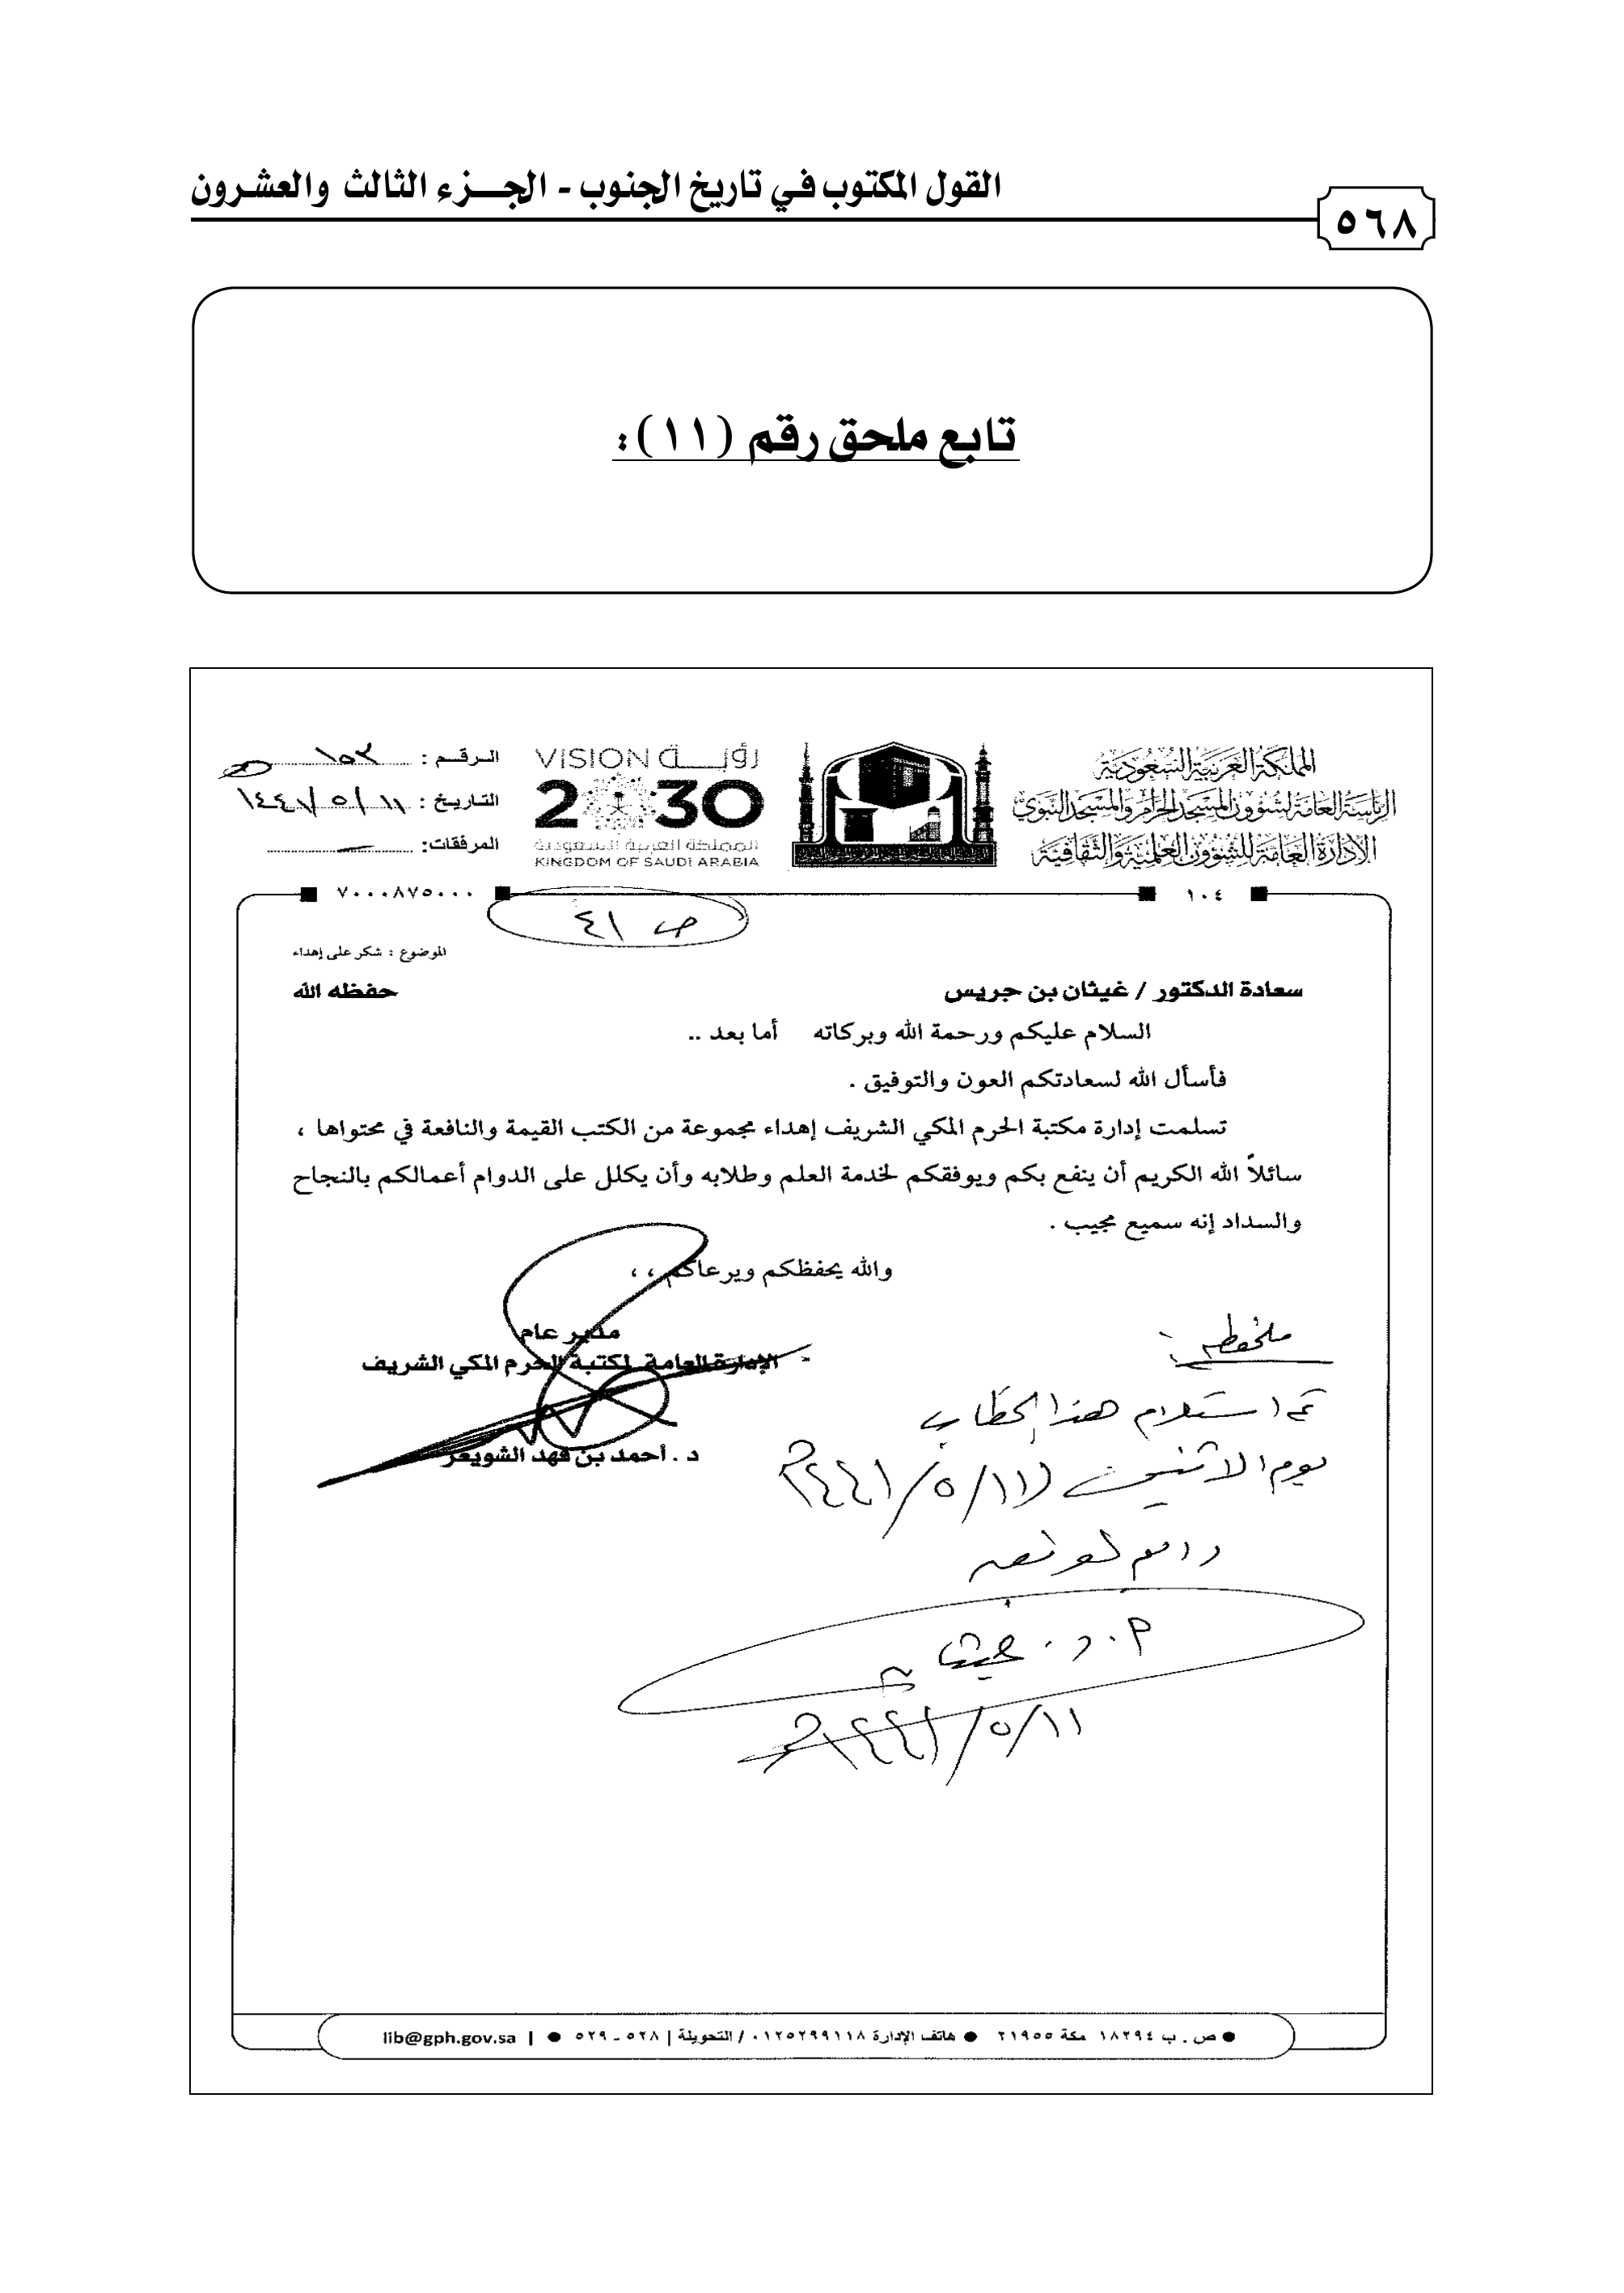 القول المكتوب في تاريخ الجنوب - الجـزء الثالث والعشرون
٥٦٨
تابع ملحق رقم (١١):
المملكة العربية السعودية
الرئاسة العامة لشؤون المسجد الحرام والمسجد النبوي
الإدارة العامة للشؤون العلمية والثقافية
VISION رؤيـــة
2030
المملكة العربية السعودية
KINGDOM OF SAUDI ARABIA
الـرقـم : ١٥٣
التـاريخ : ١١/٥/١٤٤١
المرفقات: —
١٠٤
٧٠٠٠٨٧٥٠٠٠
ص ٤١
الموضوع : شكر على إهداء
سعادة الدكتور / غيثان بن جريس حفظه الله
السلام عليكم ورحمة الله وبركاته أما بعد ..
فأسأل الله لسعادتكم العون والتوفيق .
تسلمت إدارة مكتبة الحرم المكي الشريف إهداء مجموعة من الكتب القيمة والنافعة في محتواها ،
سائلاً الله الكريم أن ينفع بكم ويوفقكم لخدمة العلم وطلابه وأن يكلل على الدوام أعمالكم بالنجاح
والسداد إنه سميع مجيب .
والله يحفظكم ويرعاكم ، ،
مدير عام
الإدارة العامة لمكتبة الحرم المكي الشريف
د . أحمد بن فهد الشويعر
ملحوظة :
تم استلام هذا الخطاب
يوم الاثنين (١١/٥/١٤٤١هـ
أ.د. غيثان
١١/٥/١٤٤١هـ
ص . ب ١٨٢٩٤ مكة ٢١٩٥٥ ● هاتف الإدارة ٠١٢٥٢٩٩١١٨ / التحويلة | ٥٢٨ - ٥٢٩ ● | lib@gph.gov.sa